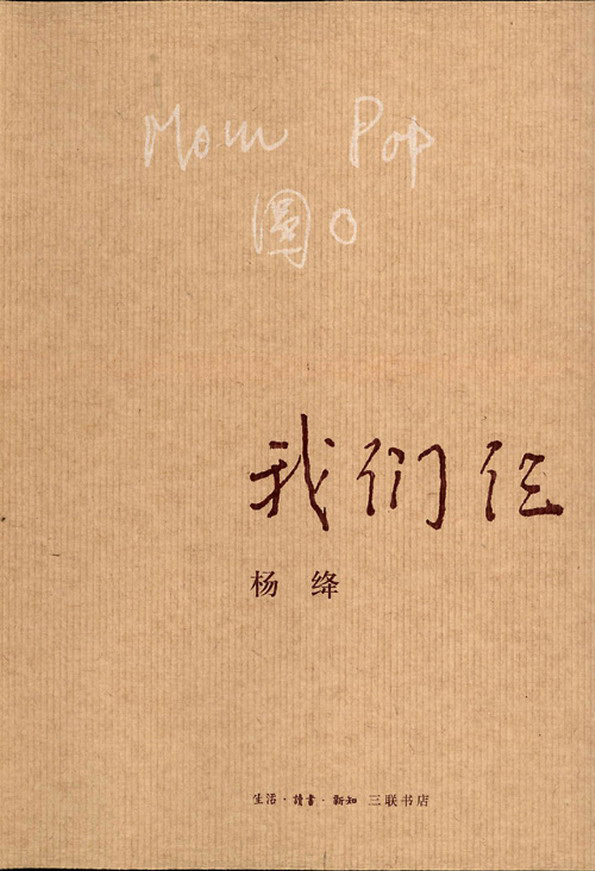 Mom Pop
圓〇
我们仨
杨绛
生活·讀書·新知 三联书店